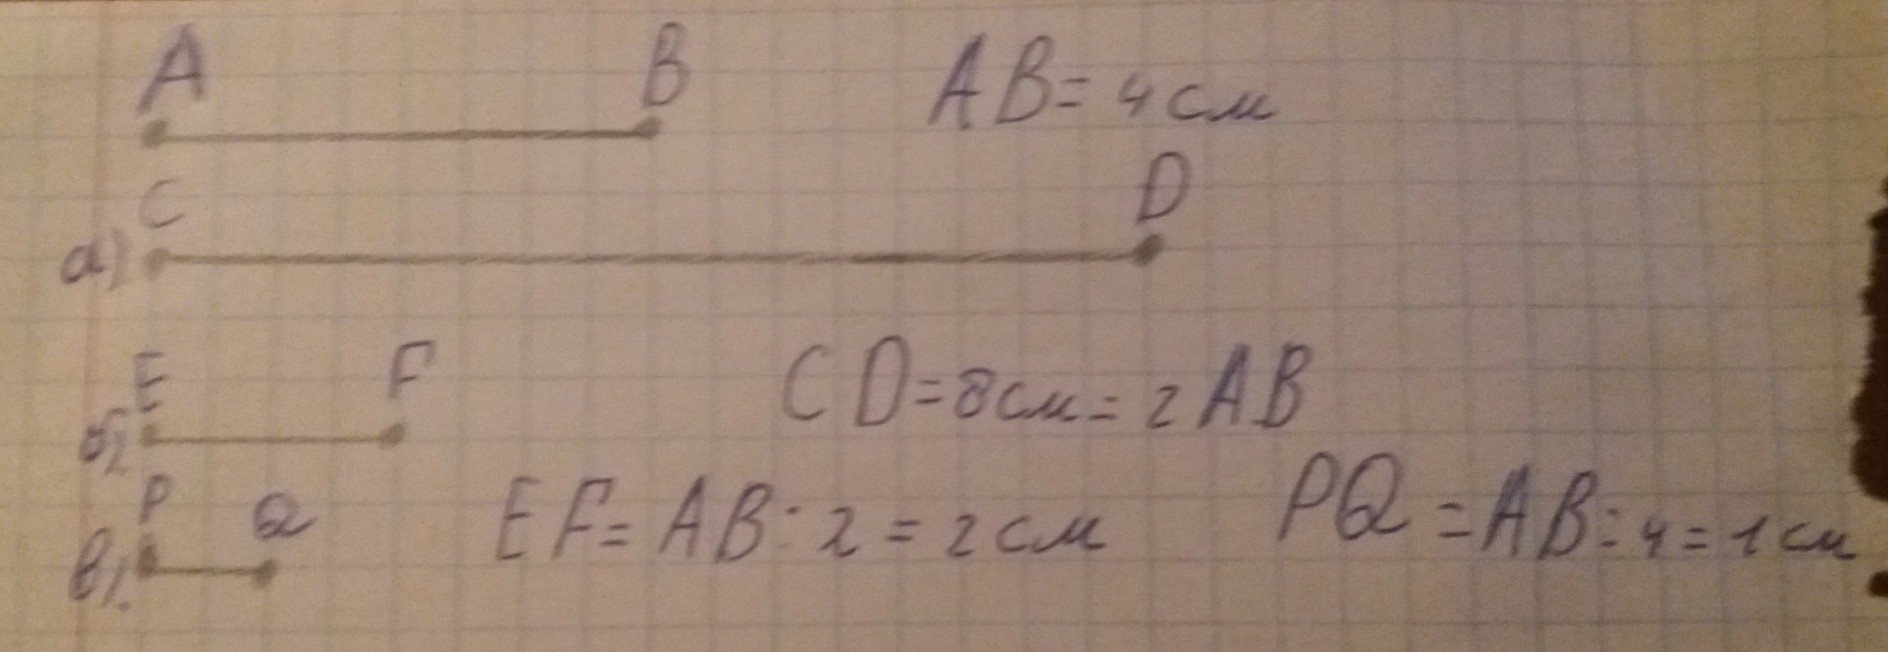 A B AB = 4 см
C D
а)
E F CD = 8 см = 2 AB
б)
P Q EF = AB : 2 = 2 см PQ = AB : 4 = 1 см
в)